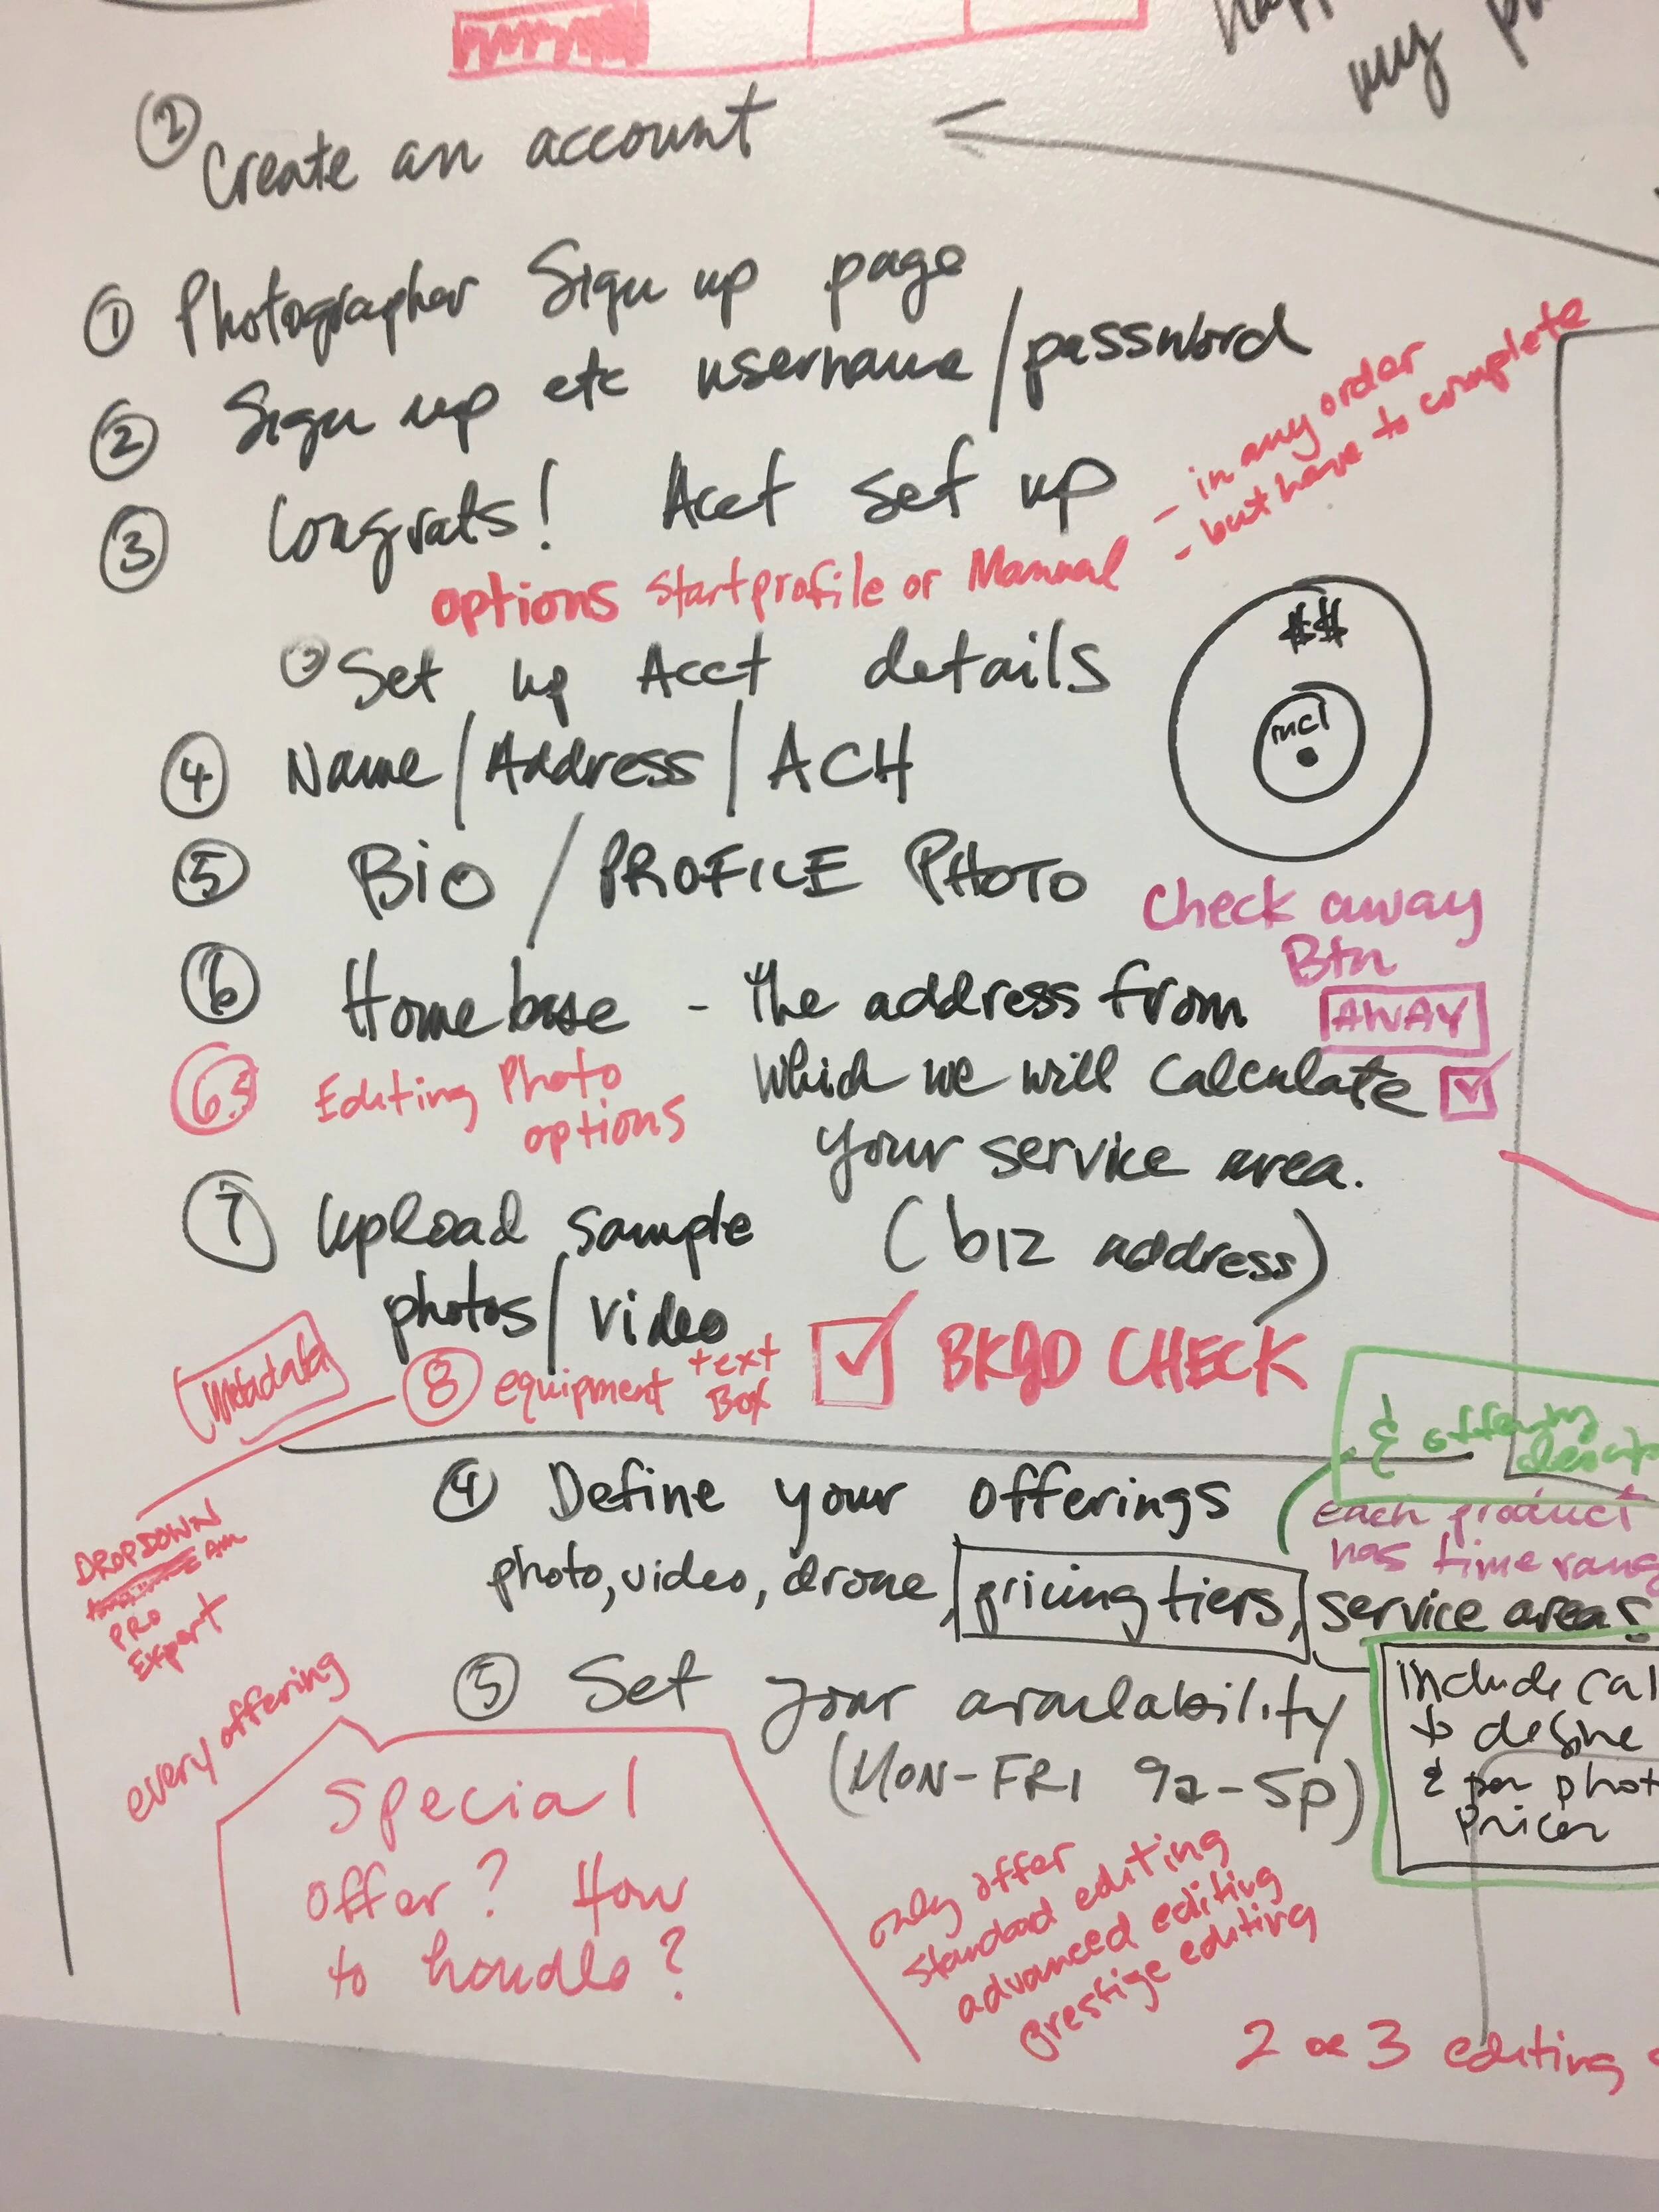 my
② Create an account
① Photographer Sign up page
② Sign up etc username/password
③ Congrats! Acct set up
- in any order
- but have to complete
options Start profile or Manual
③ Set up Acct details
$$
incl
④ Name/Address/ACH
⑤ BIO / PROFILE PHOTO
Check away
Btn
AWAY
⑥ Homebase - The address from
which we will calculate
your service area.
(biz address)
6.5 Editing Photo
options
⑦ Upload sample
photos/video
Metadata
⑧ equipment text
Box
BKGD CHECK
& offering
④ Define your offerings
each product
has time
photo, video, drone, pricing tiers, service areas
DROPDOWN
Am
PRO
Expert
⑤ Set your availability
(MON-FRI 9a-5p)
include
to define
& per
pricer
every offering
Special
offer? How
to handle?
only offer
standard editing
advanced editing
prestige editing
2 or 3 editing